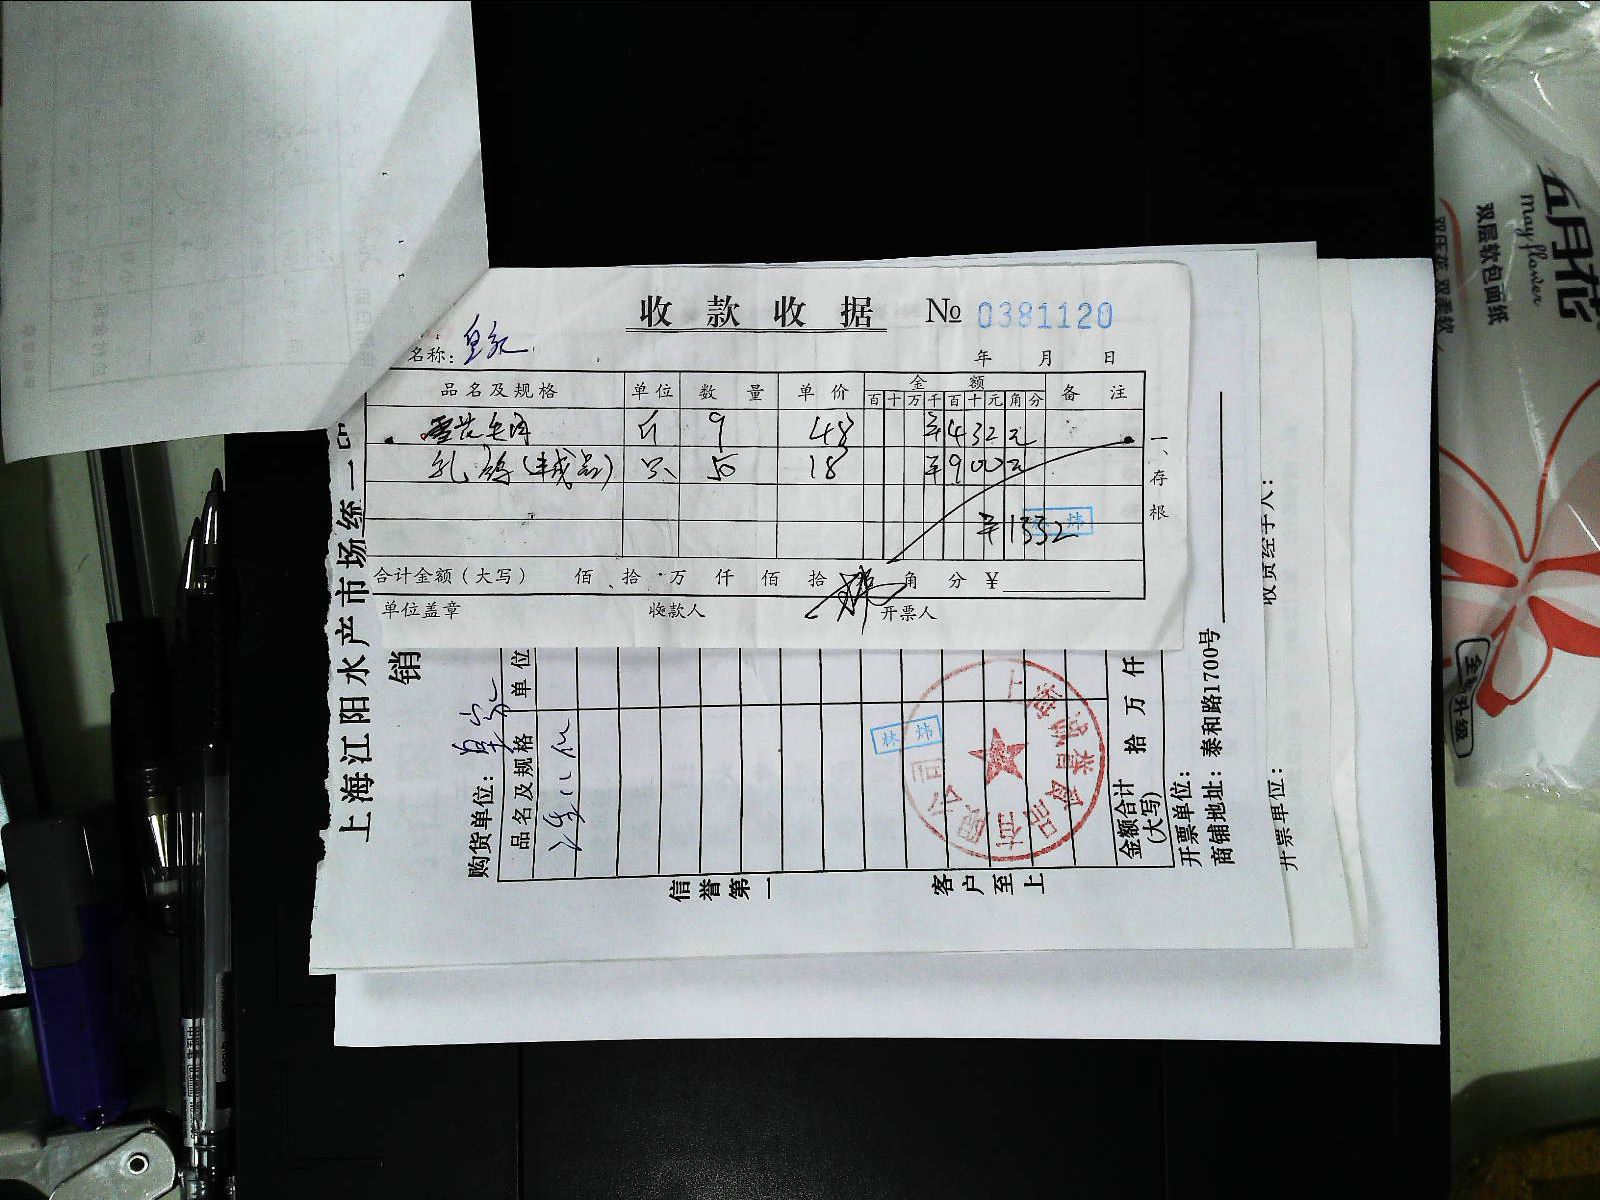 收款收据 № 0381120
名称: 皇家
年 月 日
品名及规格 单位 数量 单价 金额 备注
百 十 万 千 百 十 元 角 分
雪花牛肉 斤 9 48 ¥432元
乳鸽(半成品) 只 50 18 ¥900元
¥1332
林炜
合计金额(大写) 佰 拾 万 仟 佰 拾 角 分 ¥
单位盖章 收款人 开票人
一、存根
上海江阳水产市场统一
销
购货单位: 皇家
品名及规格 单位
林炜
金额合计(大写) 拾 万 仟
开票单位:
商铺地址: 泰和路1700号
信誉第一
客户至上
收货经手人:
开票单位:
五月花
Mayflower
双层软包面纸